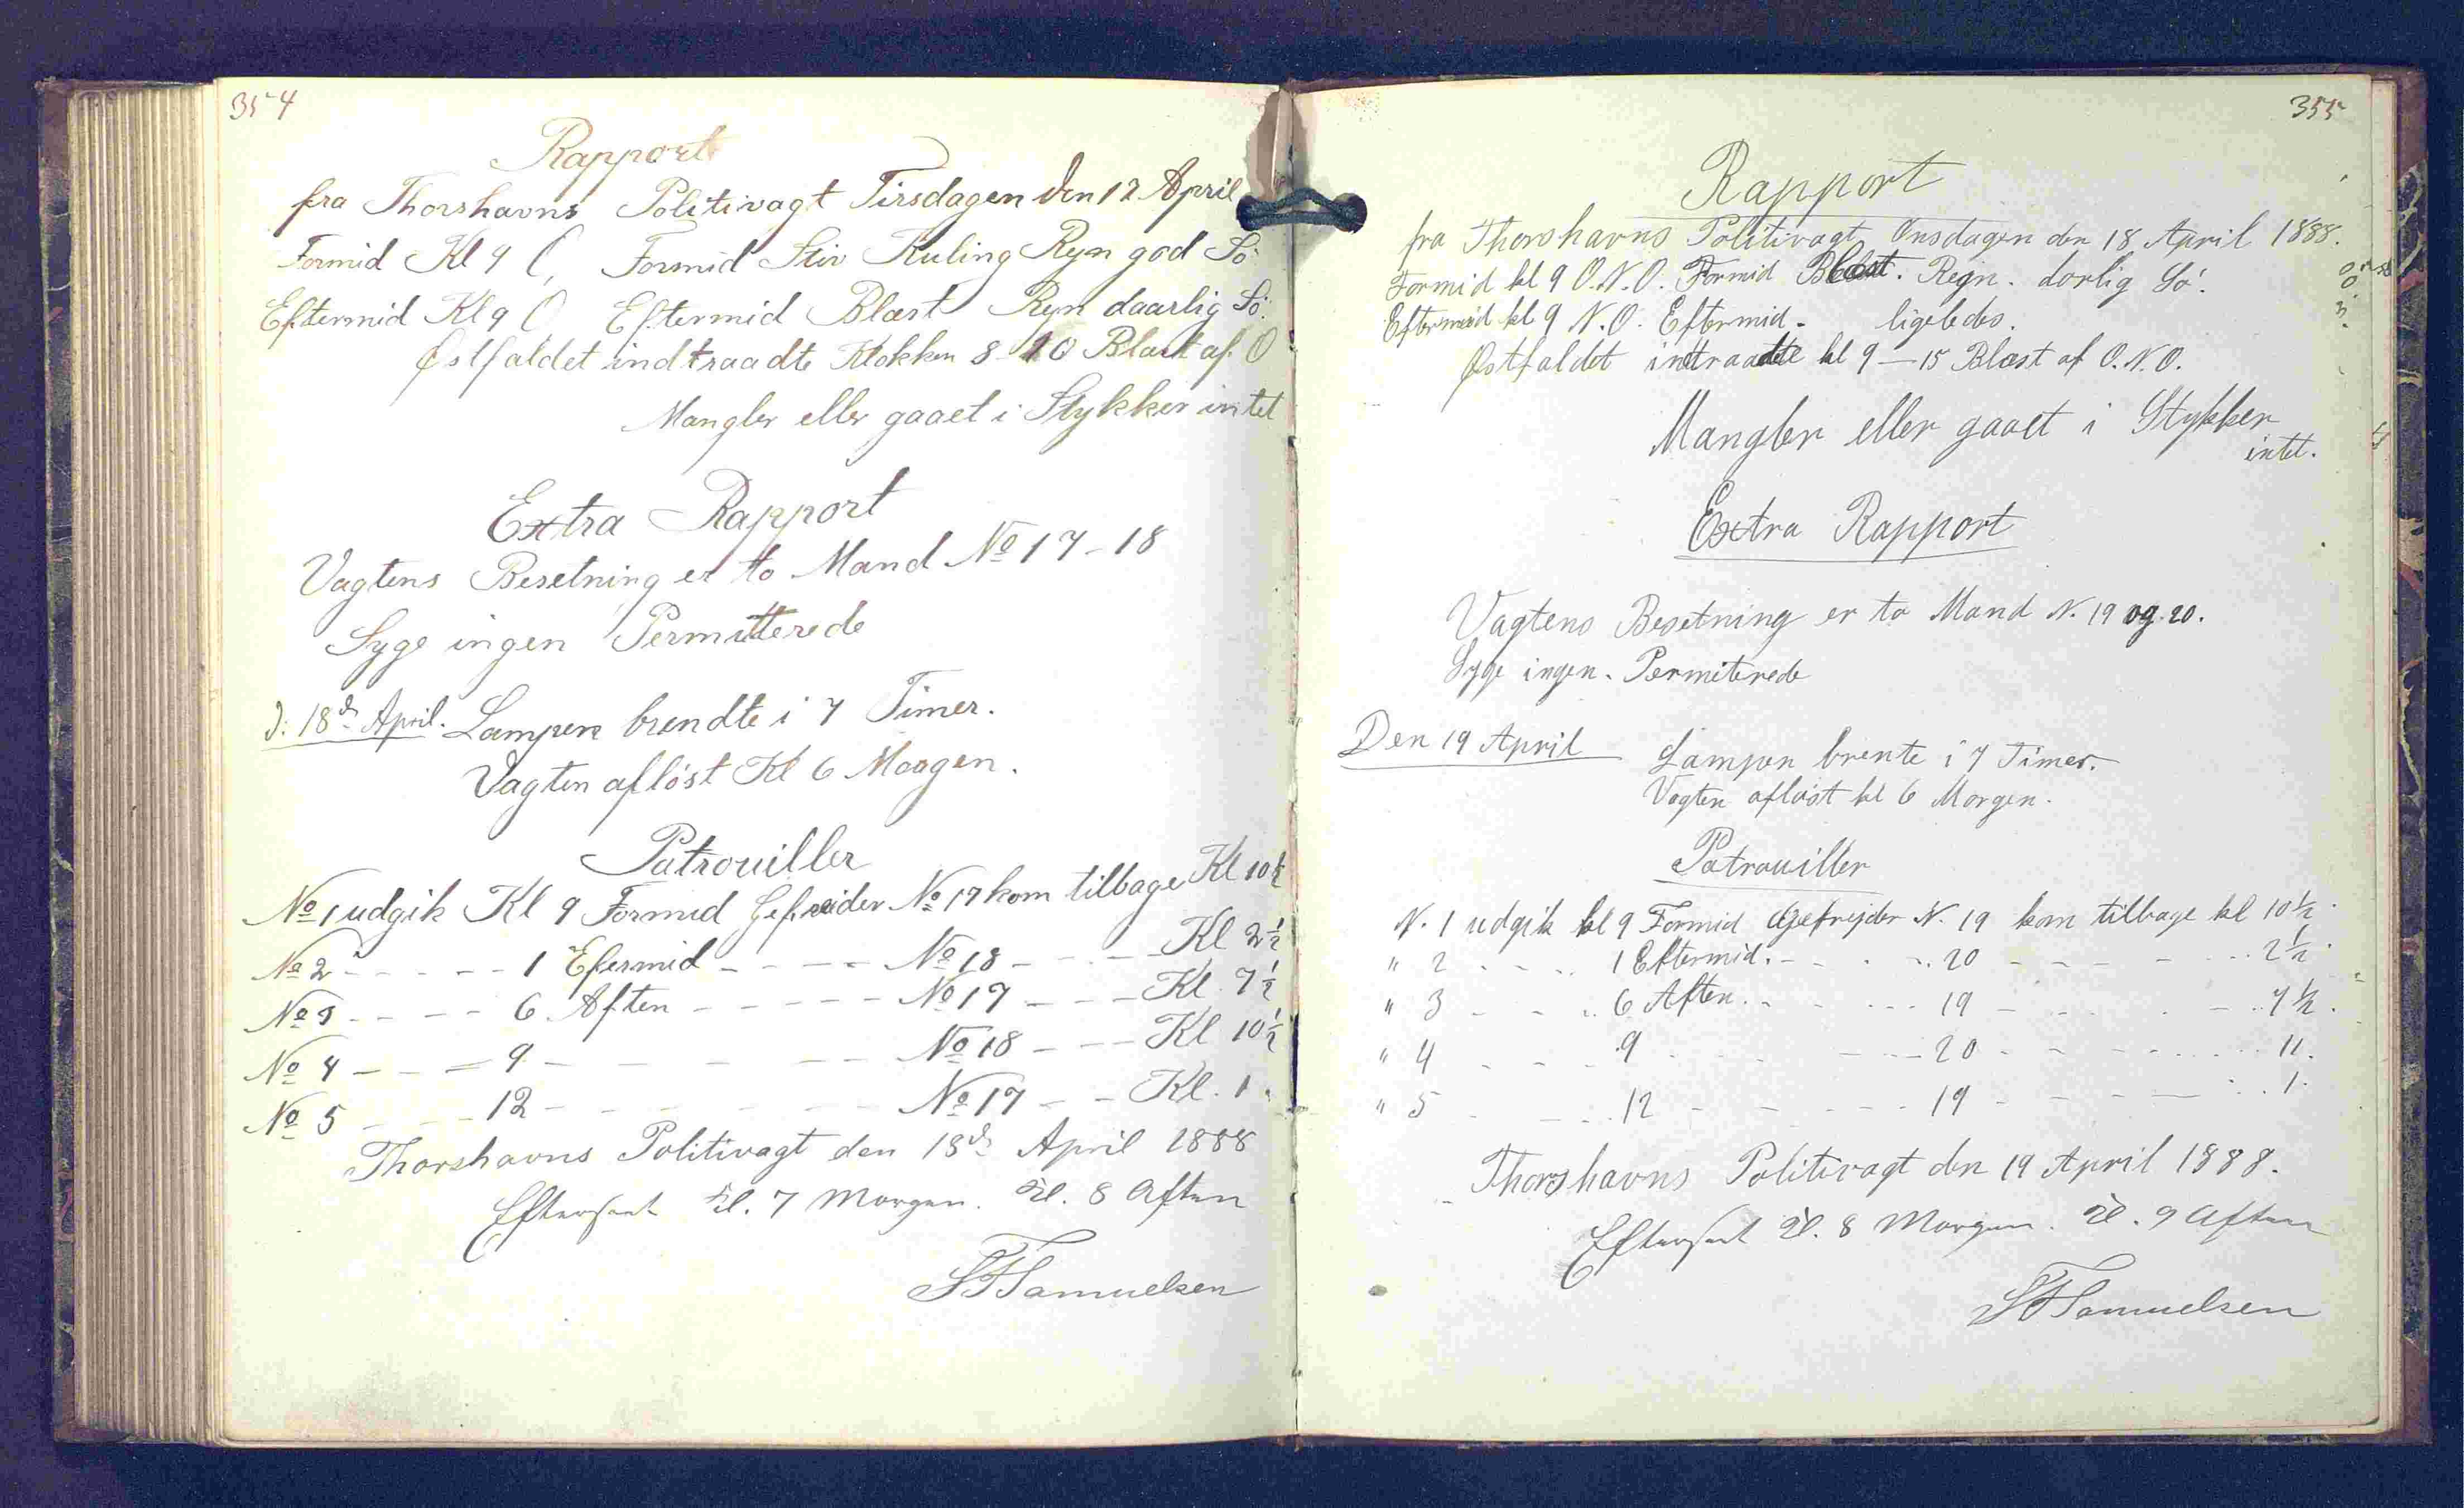 354
Rapport
fra Thorshavns Politivagt Tirsdagen den 17 April
Formid Kl 9 O, Formid Stiv Kuling Regn god Sö
Eftermid Kl 9 O Eftermid Blæst Regn daarlig Sö.
Østfaldet indtraadte Klokken 8-10 Blæst af O
Mangler eller gaaet i Stykker intet
Extra Rapport
Vagtens Besetning er to Mand No 17-18
Syge ingen Permitterede
D: 18d April. Lampen brendte i 7 Timer.
Vagten aflöst Kl 6 Morgen.
Patrouiller
No 1 udgik Kl 9 Formid Gefreider No 17 kom tilbage Kl 10½
No 2 - - - - - 1 Efermid - - - - No 18 - - - Kl 2½
No 3 - - - - 6 Aften - - - - - No 17 - - - Kl. 7½
No 4 - - - 9 - - - - - No 18 - - - Kl 10½
No 5 - - - 12 - - - - - No 17 - - Kl. 1.
Thorshavns Politivagt den 18d April 1888
Efterseet Kl. 7 Morgen. Kl. 8 Aften
Samuelsen
355
Rapport
fra Thorshavns Politivagt Onsdagen den 18 April 1888.
Formid kl 9 O.N.O. Formid Blæst. Regn. dorlig Sö.
Eftermid kl 9 N.O. Eftermid - ligeledes.
Østfaldet indtraadte kl 9-15 Blæst af O.N.O.
Mangler eller gaaet i Stykker
intet.
Extra Rapport
Vagtens Besetning er to Mand N. 19 og 20.
Syge ingen. Permiterede
Den 19 April Lampen brente i 7 Timer.
Vagten aflöst kl 6 Morgen.
Patrouiller
N. 1 udgik kl 9 Formid Gefrejder N. 19 kom tilbage kl 10½.
" 2 - - - - 1 Eftermid. - - - 20 - - - - - 2½.
" 3 - - - 6 Aften. - - - - 19 - - - - - 7½.
" 4 - - - 9 - - - - 20 - - - - - 11.
" 5 - - - 12 - - - - 19 - - - - - 1.
Thorshavns Politivagt den 19 April 1888.
Efterseet Kl. 8 Morgen. Kl. 9 Aften
Samuelsen